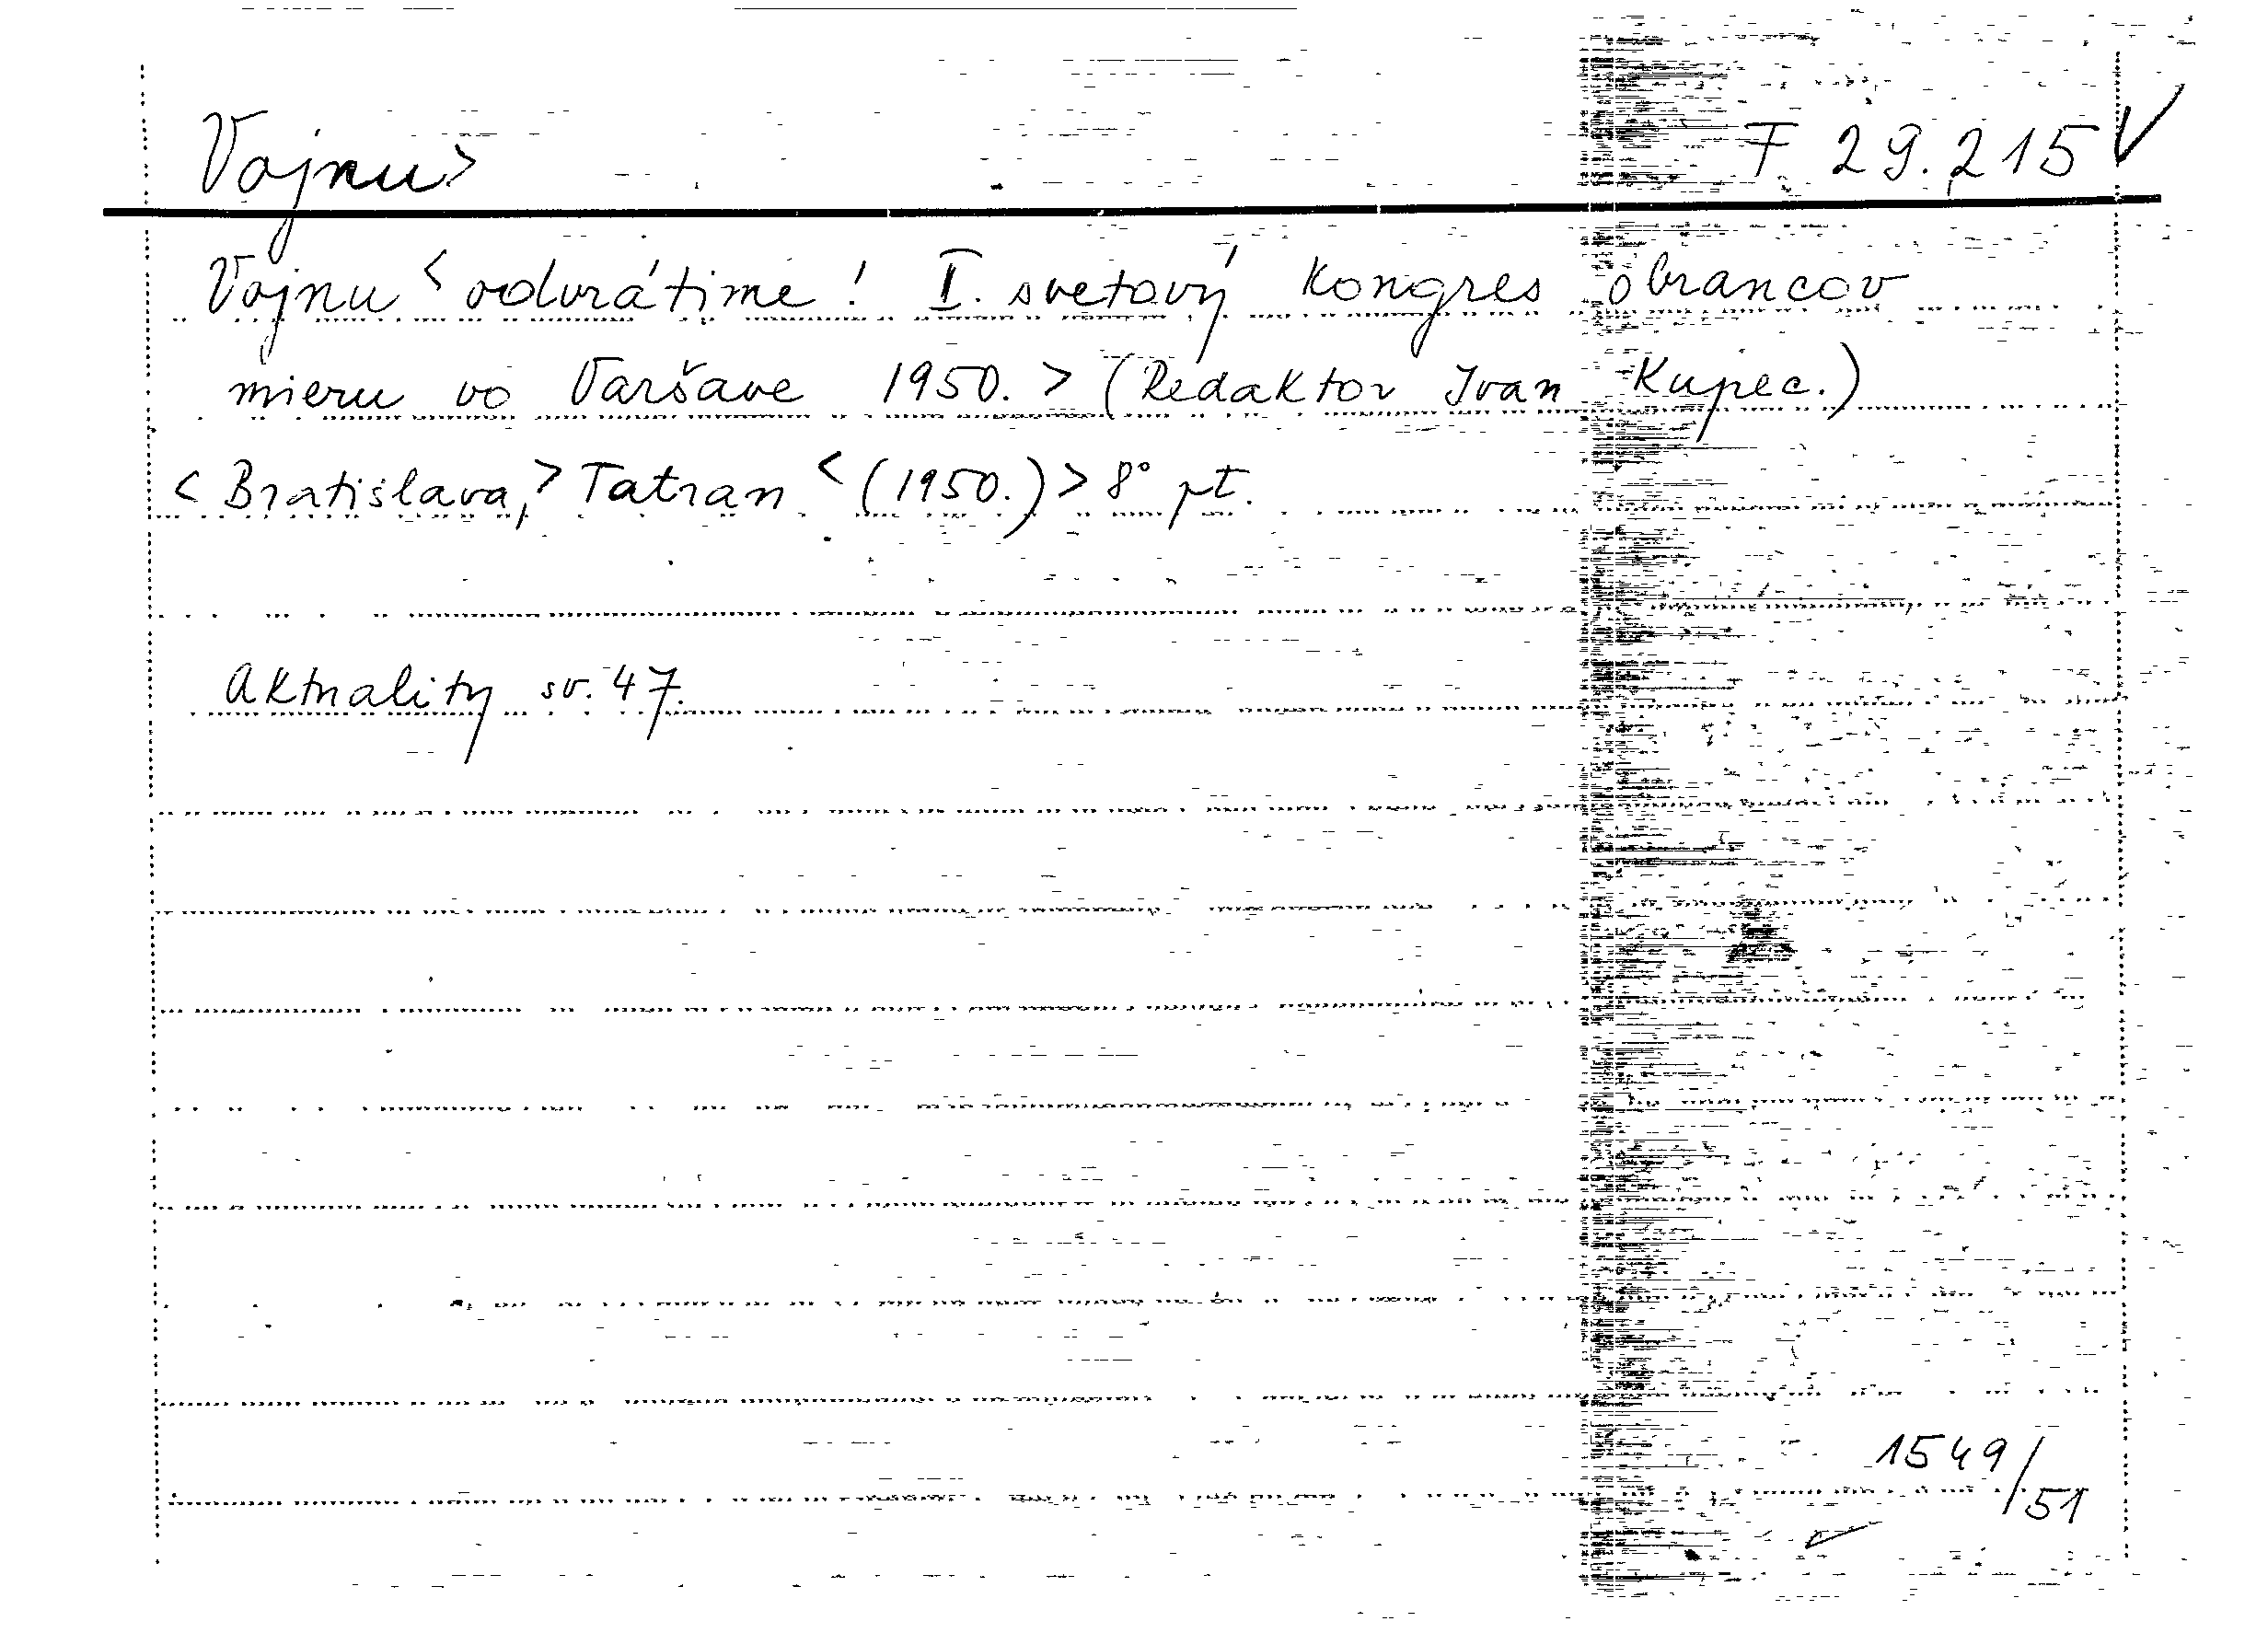 Vojnu>
F 29.215 V
Vojnu < odvrátime! I. svetový kongres obrancov
mieru vo Varšave 1950. > (Redaktor Ivan Kupec.)
< Bratislava, > Tatran < (1950.) > 8° pt.
Aktuality sv. 47.
1549/51